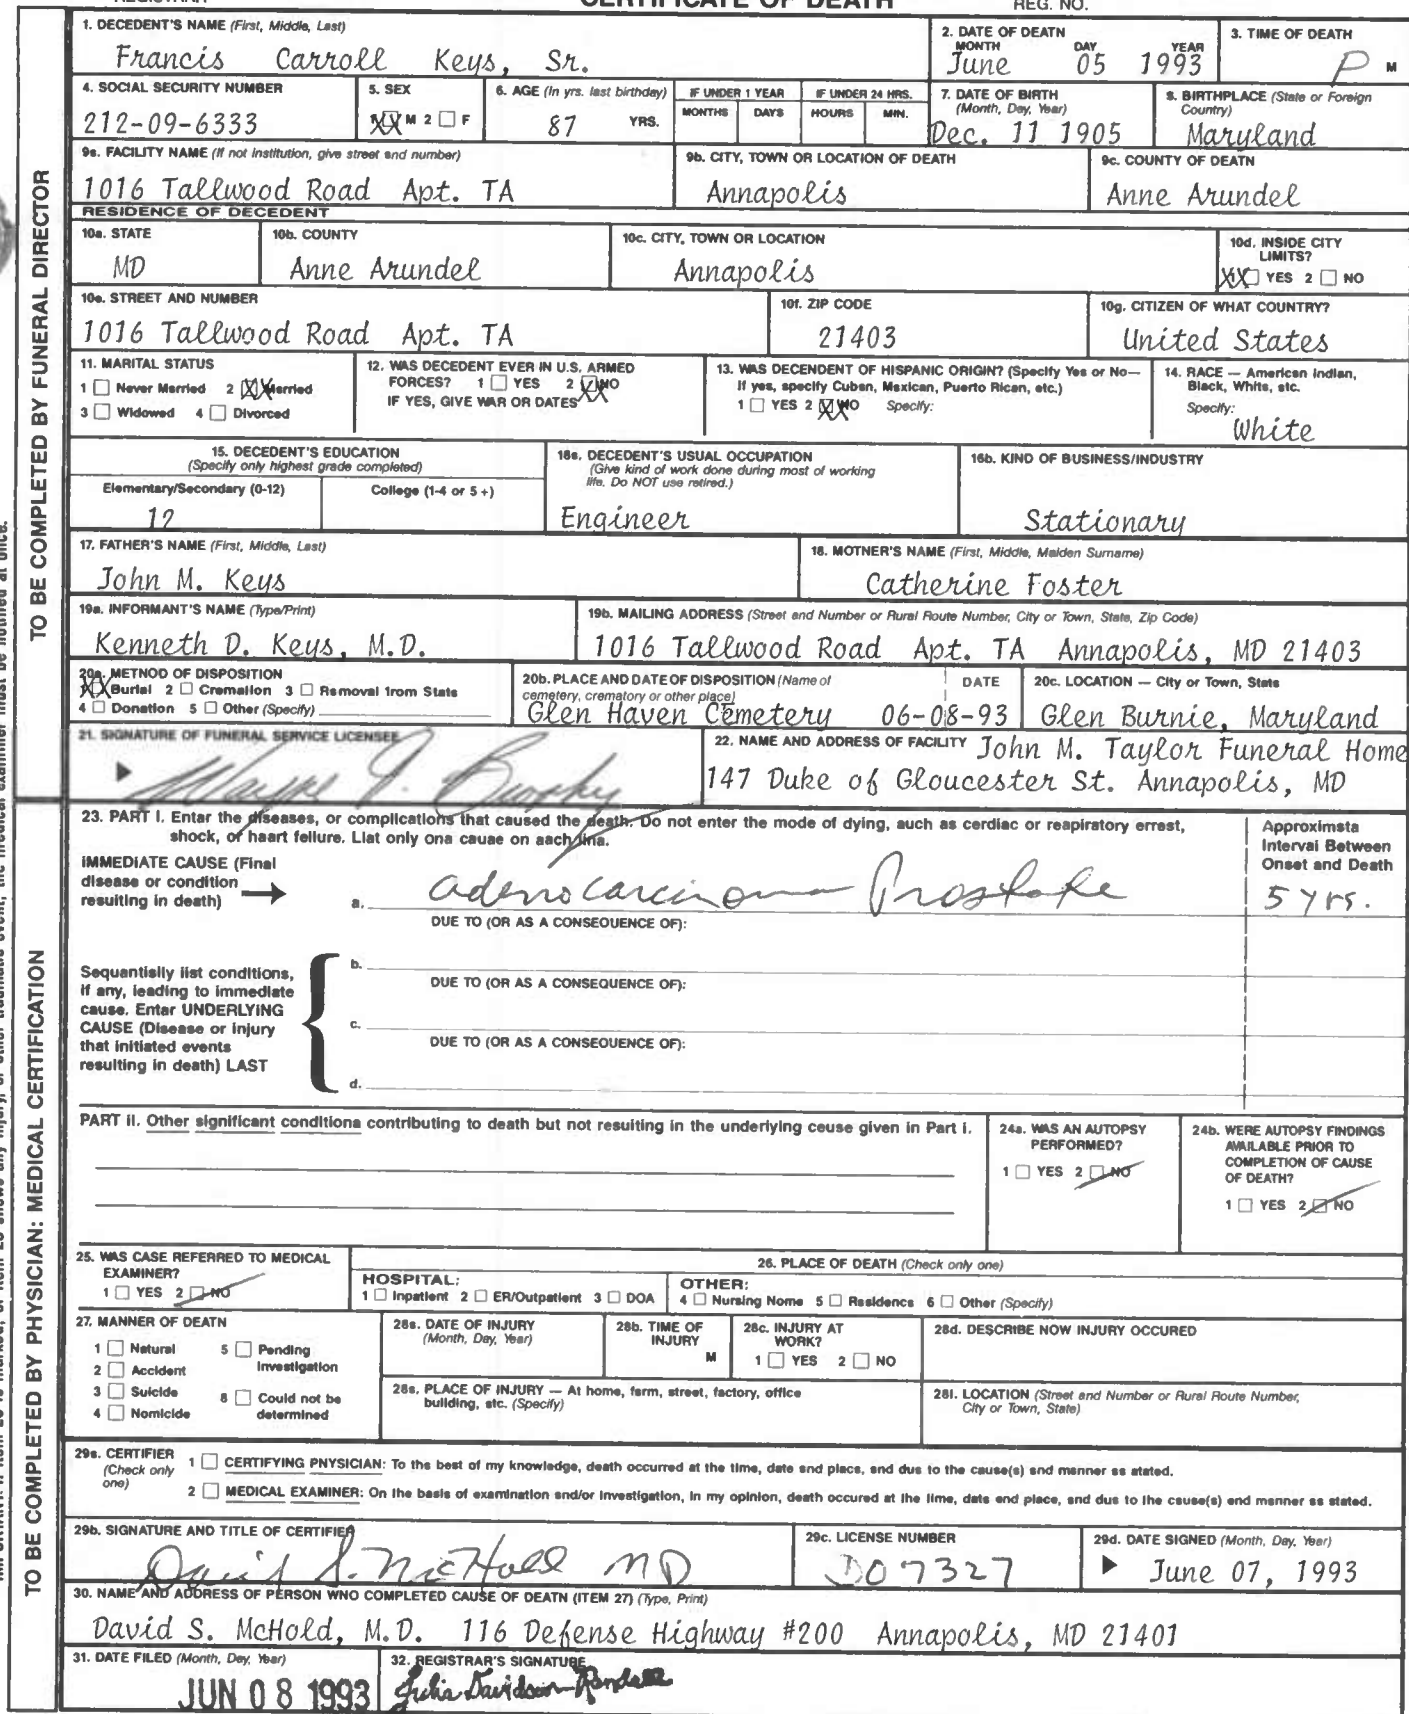 CERTIFICATE OF DEATH REG. NO.
1. DECEDENT'S NAME (First, Middle, Last)
Francis Carroll Keys, Sr.
2. DATE OF DEATH
MONTH DAY YEAR
June 05 1993
3. TIME OF DEATH
P M
4. SOCIAL SECURITY NUMBER
212-09-6333
5. SEX
XX M 2 F
6. AGE (In yrs. last birthday)
87 YRS.
IF UNDER 1 YEAR
MONTHS DAYS
IF UNDER 24 HRS.
HOURS MIN.
7. DATE OF BIRTH
(Month, Day, Year)
Dec. 11 1905
8. BIRTHPLACE (State or Foreign
Country)
Maryland
9a. FACILITY NAME (If not institution, give street and number)
1016 Tallwood Road Apt. TA
9b. CITY, TOWN OR LOCATION OF DEATH
Annapolis
9c. COUNTY OF DEATH
Anne Arundel
RESIDENCE OF DECEDENT
10a. STATE
MD
10b. COUNTY
Anne Arundel
10c. CITY, TOWN OR LOCATION
Annapolis
10d. INSIDE CITY
LIMITS?
XX YES 2 NO
10e. STREET AND NUMBER
1016 Tallwood Road Apt. TA
10f. ZIP CODE
21403
10g. CITIZEN OF WHAT COUNTRY?
United States
11. MARITAL STATUS
1 Never Married 2 XX Married
3 Widowed 4 Divorced
12. WAS DECEDENT EVER IN U.S. ARMED
FORCES? 1 YES 2 XX NO
IF YES, GIVE WAR OR DATES
13. WAS DECENDENT OF HISPANIC ORIGIN? (Specify Yes or No—
If yes, specify Cuban, Mexican, Puerto Rican, etc.)
1 YES 2 XX NO Specify:
14. RACE — American Indian,
Black, White, etc.
Specify:
White
15. DECEDENT'S EDUCATION
(Specify only highest grade completed)
Elementary/Secondary (0-12) College (1-4 or 5+)
12
16a. DECEDENT'S USUAL OCCUPATION
(Give kind of work done during most of working
life. Do NOT use retired.)
Engineer
16b. KIND OF BUSINESS/INDUSTRY
Stationary
17. FATHER'S NAME (First, Middle, Last)
John M. Keys
18. MOTHER'S NAME (First, Middle, Maiden Surname)
Catherine Foster
19a. INFORMANT'S NAME (Type/Print)
Kenneth D. Keys, M.D.
19b. MAILING ADDRESS (Street and Number or Rural Route Number, City or Town, State, Zip Code)
1016 Tallwood Road Apt. TA Annapolis, MD 21403
20a. METHOD OF DISPOSITION
XX Burial 2 Cremation 3 Removal from State
4 Donation 5 Other (Specify)
20b. PLACE AND DATE OF DISPOSITION (Name of
cemetery, crematory or other place) DATE
Glen Haven Cemetery 06-08-93
20c. LOCATION — City or Town, State
Glen Burnie, Maryland
21. SIGNATURE OF FUNERAL SERVICE LICENSEE
22. NAME AND ADDRESS OF FACILITY John M. Taylor Funeral Home
147 Duke of Gloucester St. Annapolis, MD
23. PART I. Enter the diseases, or complications that caused the death. Do not enter the mode of dying, such as cardiac or respiratory arrest,
shock, or heart failure. List only one cause on each line.
Approximate
Interval Between
Onset and Death
IMMEDIATE CAUSE (Final
disease or condition
resulting in death)
a. adenocarcinoma Prostate 5 yrs.
DUE TO (OR AS A CONSEQUENCE OF):
b.
DUE TO (OR AS A CONSEQUENCE OF):
c.
DUE TO (OR AS A CONSEQUENCE OF):
d.
Sequentially list conditions,
if any, leading to immediate
cause. Enter UNDERLYING
CAUSE (Disease or injury
that initiated events
resulting in death) LAST
PART II. Other significant conditions contributing to death but not resulting in the underlying cause given in Part I.
24a. WAS AN AUTOPSY
PERFORMED?
1 YES 2 NO
24b. WERE AUTOPSY FINDINGS
AVAILABLE PRIOR TO
COMPLETION OF CAUSE
OF DEATH?
1 YES 2 NO
25. WAS CASE REFERRED TO MEDICAL
EXAMINER?
1 YES 2 NO
26. PLACE OF DEATH (Check only one)
HOSPITAL:
1 Inpatient 2 ER/Outpatient 3 DOA
OTHER:
4 Nursing Home 5 Residence 6 Other (Specify)
27. MANNER OF DEATH
1 Natural 5 Pending
2 Accident Investigation
3 Suicide 8 Could not be
4 Homicide determined
28a. DATE OF INJURY
(Month, Day, Year)
28b. TIME OF
INJURY
M
28c. INJURY AT
WORK?
1 YES 2 NO
28d. DESCRIBE HOW INJURY OCCURED
28e. PLACE OF INJURY — At home, farm, street, factory, office
building, etc. (Specify)
28f. LOCATION (Street and Number or Rural Route Number,
City or Town, State)
29a. CERTIFIER
(Check only
one)
1 CERTIFYING PHYSICIAN: To the best of my knowledge, death occurred at the time, date and place, and due to the cause(s) and manner as stated.
2 MEDICAL EXAMINER: On the basis of examination and/or investigation, in my opinion, death occured at the time, date and place, and due to the cause(s) and manner as stated.
29b. SIGNATURE AND TITLE OF CERTIFIER
David S. McHold MD
29c. LICENSE NUMBER
D07327
29d. DATE SIGNED (Month, Day, Year)
June 07, 1993
30. NAME AND ADDRESS OF PERSON WHO COMPLETED CAUSE OF DEATH (ITEM 27) (Type, Print)
David S. McHold, M.D. 116 Defense Highway #200 Annapolis, MD 21401
31. DATE FILED (Month, Day, Year)
JUN 08 1993
32. REGISTRAR'S SIGNATURE
Julia Davidson-Randall
TO BE COMPLETED BY FUNERAL DIRECTOR
TO BE COMPLETED BY PHYSICIAN: MEDICAL CERTIFICATION